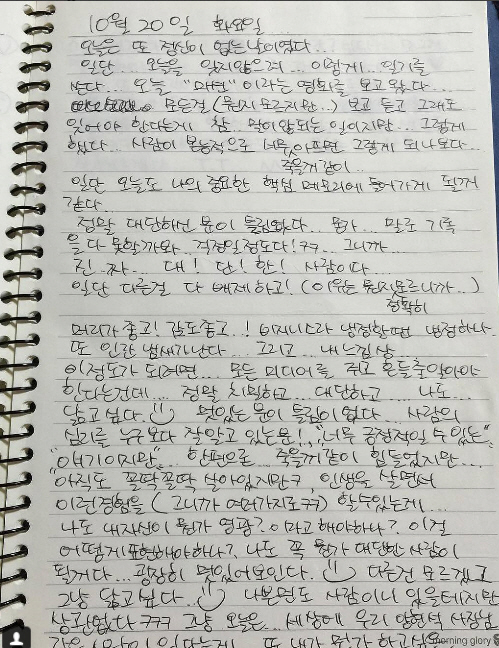 10월 20일 화요일
오늘은 또 정신이 없는 날이였다...
일단... 오늘을 잊지않으려... 이렇게.. 일기를
쓴다... 오늘 "매면" 이라는 영화를 보고왔다...
모든걸 (뭔지모르지만..) 보고 듣고 그래도
잊어야 한다는게 참.. 말이안되는 일이지만... 그렇게
했다... 사람이 본능적으로 너무 아프면 그렇게 되나보다...
죽을꺼같이...
일단 오늘도 나의 중요한 핵심 메모리에 들어가게 될꺼
같다...
정말 대단하신 분이 틀림없다... 뭔가... 말로 기록
을 다 못할까봐.. 걱정일정도다!ㅋㅋ. 그니까
진. 짜. 대! 단! 한! 사람이다...
일단 다른걸 다 배제하고! (이유는 뭔지모르니까...)
정확히
머리가좋고! 감도좋고..! 비지니스라 냉정할땐 냉정하나..
또 인간 냄새가난다... 그리고... 내느낌상...
이정도가 되려면... 모든 미디어를 쥐고 흔들줄알아야
한다는건데... 정말 치밀하고... 대단하고... 나도..
닮고싶다.. 멋있는분이 틀림이없다... 사람의
심리를 누구보다 잘알고 있는분!, "너무 긍정적일 수 있는"
"얘기이지만" 한편으로... 죽을꺼같이 힘들었지만...
"아직도 꼴딱꼴딱 살아있지만ㅋ, 인생을 살면서
이런경험을 (그니까 여러가지로ㅋㅋ) 할수있는게...
나도 내자신이 뭔가 영광?이라고해야하나?, 이걸
어떻게 표현해야하나?, 나도 꼭 뭔가 대단한 사람이
될꺼다... 굉장히 멋있어보인다. 다른건 모르겠고
그냥 닮고싶다... 나쁜면도 사람이니 있을테지만
상관없다 ㅋㅋㅋ 그냥 오늘은... 세상에 우리 양현석 사장님
같은 사람이 있다는게... 또 내가 뭔가 하고싶은
morning glory